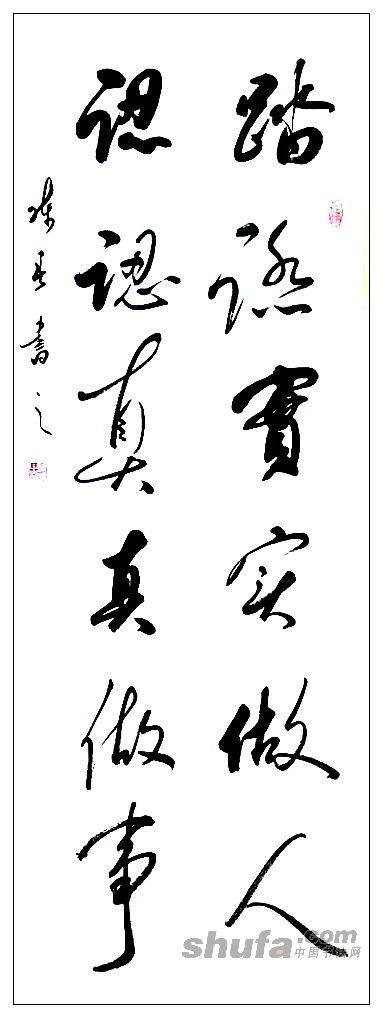 踏踏實实做人
認認真真做事
書之
shufa.com
中国书法网